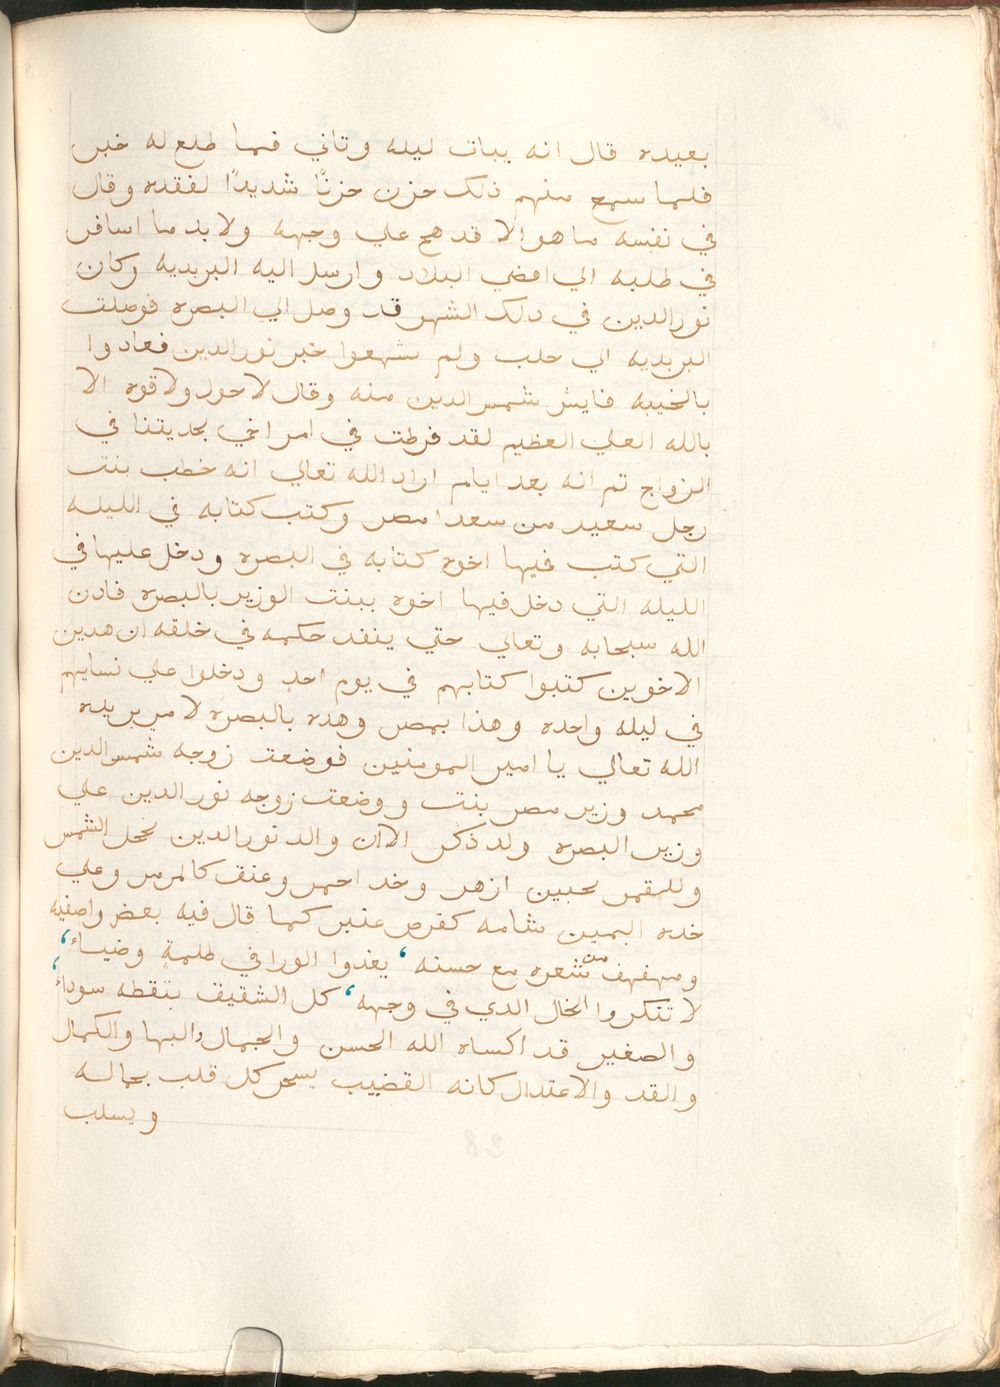 بعيده قال انه يبات ليله وتاني فما طلع له خبر
فلما سمع منهم ذلك حزن حزنًا شديدًا لفقده وقال
في نفسه ما هو الا قد هج علي وجهه ولا بد ما اسافر
في طلبه الي اقصي البلاد وارسل اليه البريديه وكان
نور الدين في دلك الشهر قد وصل الي البصره فوصلت
البريديه الي حلب ولم سمعوا خبر نور الدين فعادوا
بالخيبه فايش شمس الدين منه وقال لا حول ولا قوه الا
بالله العلي العظيم لقد فرطت في امر اخي بحديتنا في
الزواج تم انه بعد ايام اراد الله تعالي انه خطب بنت
رجل سعيد من سعدا مصر وكتب كتابه في الليله
التي كتب فيها اخوه كتابه في البصره ودخل عليها في
الليله التي دخل فيها اخوه ببنت الوزير بالبصره فادن
الله سبحابه وتعالي حتي ينفد حكمه في خلقه ان هدين
الاخوين كتبوا كتابهم في يوم احدٍ ودخلوا علي نسايهم
في ليله واحده وهذا بمصر وهده بالبصره لامر يريده
الله تعالي يا امير المومنين فوضعت زوجه شمس الدين
محمد وزير مصر بنت ووضعت زوجه نور الدين علي
وزير البصره ولد ذكر الاان والد نور الدين يخجل الشمس
وللقمر بجبين ازهر وخد احمر وعنق كالمرمر وعلي
خده اليمين شامه كقرص عنبر كما قال فيه بعض واصفيه
ومهفهف من شعره مع حسنه، يغدوا الورا في طلمةٍ وضياء،
لا تنكروا الخال الدي في وجهه، كل الشقيق بنقطه سوداء،
والصغير قد اكساه الله الحسن والجمال والبها والكمال
والقد والاعتدال كانه القضيب يسحر كل قلب بجماله
ويسلب